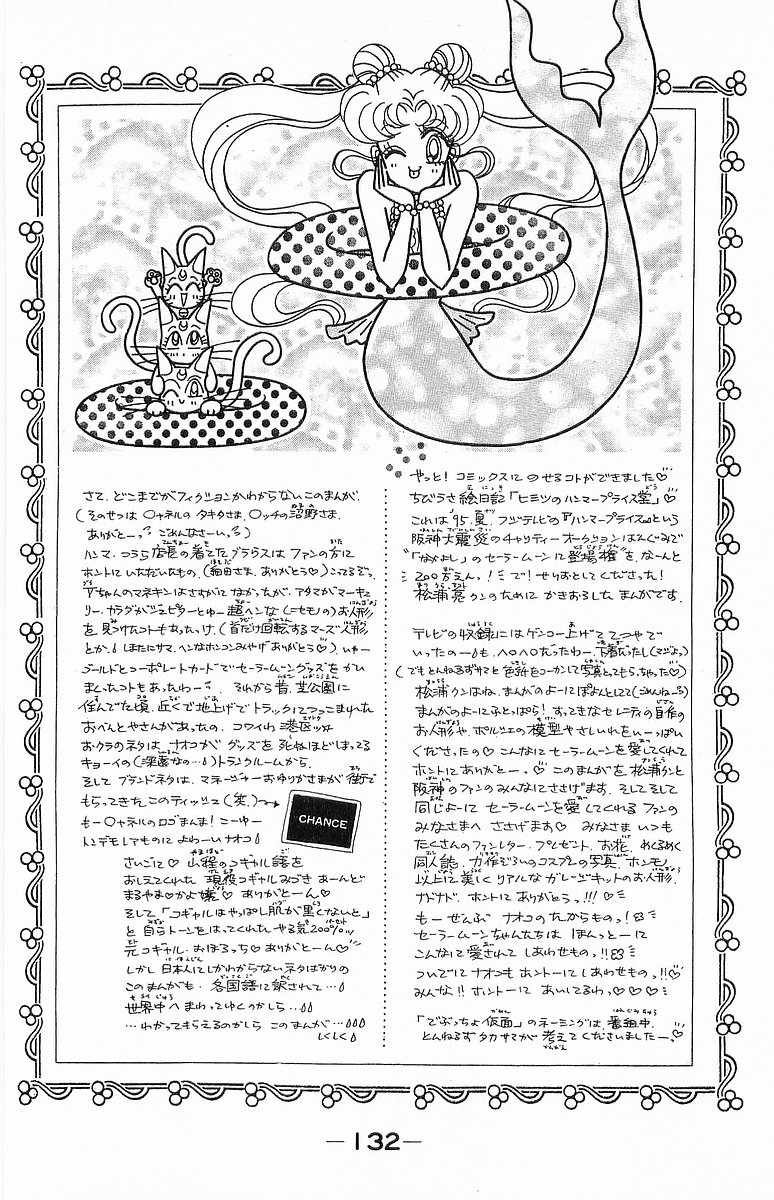 やっと! コミックスに のせるコトができました♡
ちびうさ絵日記「ヒミツのハンマープライス堂」♡
これは '95.夏. フジテレビの『ハンマープライス』という
阪神大震災のチャリティーオークションばんぐみで
"「なかよし」のセーラームーンに登場権"を、なーんと
200万えん,! で! せりおとしてくださった!
松浦亮クンのために かきおろした まんがです.
テレビの収録にはゲンコー上げてテツヤで
いったのー. ヘロヘロだったわー. 下着だったし(マジよっ)
(でもとんねるずサマと色紙をコーカンして写真とってもらっちゃった♡)
松浦クンはね、まんがのよーにぽよんとしてて(ごめんねーっ)
まんがのよーにふとっぱら! すってきなセレニティの自作の
お人形や、ポルシェの模型やさしいれをいーっぱい
くださったの♡こんなにセーラームーンを愛してくれて
ホントにありがとーっ♡ このまんがを松浦クンと
阪神のファンのみんなにささげます. そしてそして
同じよーに セーラームーンを愛してくれる ファンの
みなさまへ ささげます♡ みなさま いつも
たくさんのファンレター. プレゼント. お花. めくるめく
同人誌. 力作ぞろいのコスプレの写真. ホンモノ
以上に美しく リアルな ガレージキットのお人形.
ナドナド. ホントに ありがとうっ!!! ♡
もーぜんぶ ナオコの たからものっ!
セーラームーンちゃんたちは ほんっとーに
こんなに愛されて しあわせものっ!!
ついでにナオコも ホントーに しあわせものっ!!♡
みんな!! ホントーに あいしてるわっ♡♡♡
「でぶっちょ仮面」のネーミングは、番組中.
とんねるず タカサマが 考えてくださいましたー♡
さて、どこまでがフィクションかわからないこのまんが.
(そのせつは ○ャネルの タキタさま、○ッチの沼野さま.
ありがとーっ ごめんなさーい)
ハンマ. つうら店長の着てたブラウスは ファンの方に
ホントにいただいたもの.(細田さま、ありがとう♡)こってるぞっ.
Vちゃんのマネキンはさすがになかったが、アタマがマーキュ
リー. カラダがジュピターとゆー超ヘンな(ニセモノの)お人形
を見つけたコトもあったっけ.(首だけ回転するマーズ人形
とか.!ほたにサマ、ヘンなホンコンみやげありがとう♡). いゆー
ゴールドとコーポレートカードでセーラームーングッズをかい
まくったコトもあったわー. それから昔、芝公園に
住んでた頃、近くで地上げでトラックにつっこまれた
おべんとやさんがあったの. コワイわ港区ッ
おクラのネタは、ナオコが グッズを 死ぬほどしまってる
キョーイの(深蔵なの…)トランクルームから.
そしてブランドネタは、マネージャーおゆりがさまが街で
もらってきた このティッシュ(笑.)→
もー○ャネルのロゴまんま! こーゆー
トンデモしてものに よわーいナオコ
CHANCE
さいごに♡ 山程のコギャル語を
おしえてくれた 現役コギャルみづき あーんど
まるやま♡かよ嬢♡ ありがとーん♡
そして「コギャルはやっぱし肌が黒くないと」
と 自らトーンをはってくれた やる気200%ッ
元コギャル. おぼろっち♡ありがとーん♡
しかし 日本人にしかわからないネタばかりの
このまんがも. 各国語に訳されて…
世界中へ まわってゆくのかしら…
…わかってもらえるのかしら このまんが…
しくしく
—132—